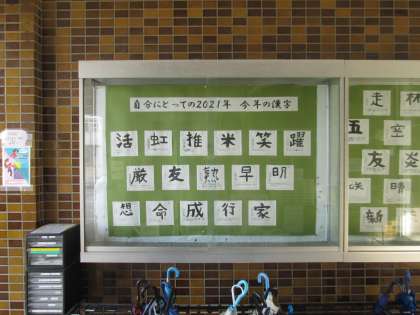 自分にとっての2021年 今年の漢字
活 虹 推 米 笑 躍
厳 友 熱 早 明
想 命 成 行 家
走 杯
五 玄
友 炎
咲 晴
新